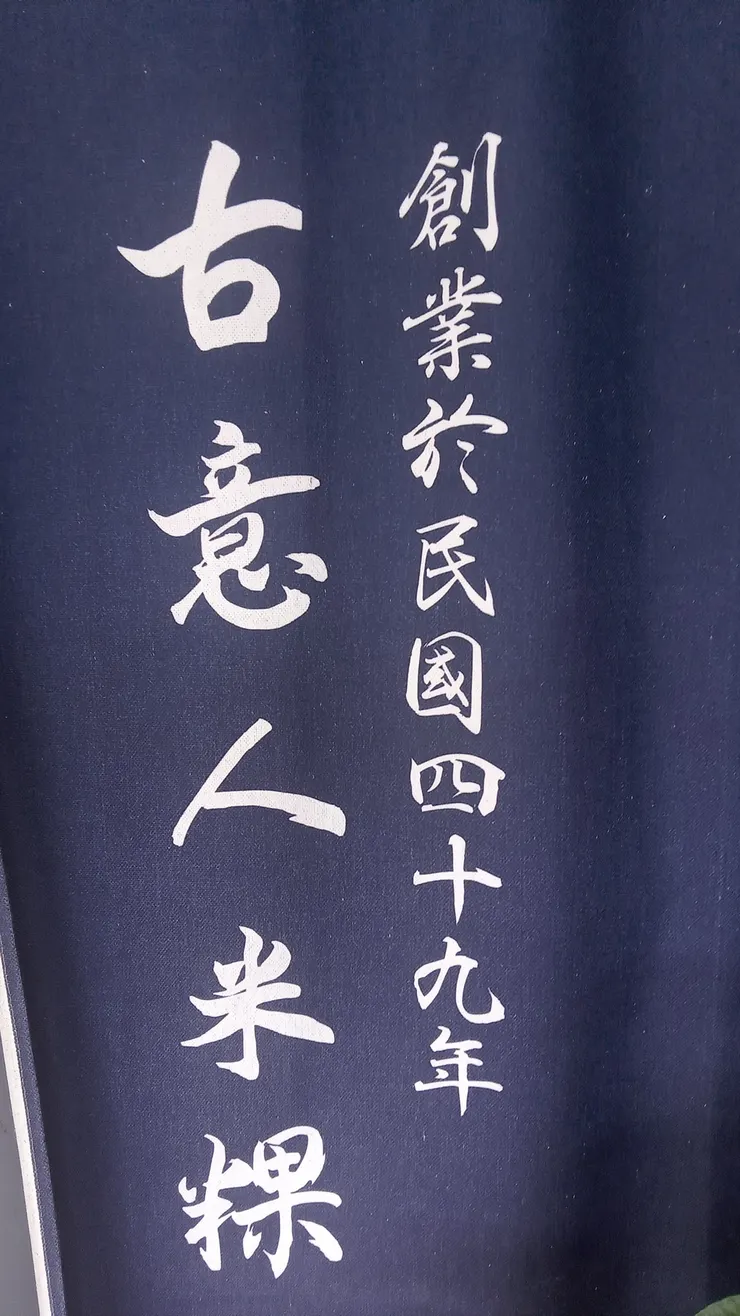 創業於民國四十九年
古意人米粿